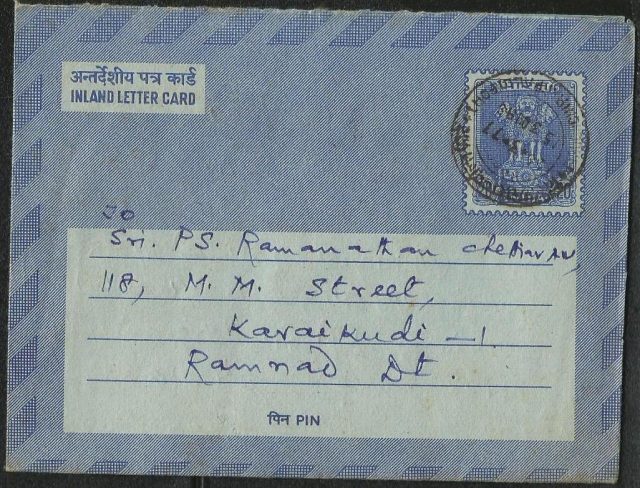 अन्तर्देशीय पत्र कार्ड
INLAND LETTER CARD
To
Sri. PS. Ramanathan Chettiar
118, M. M. Street,
Karaikudi -1.
Ramnad Dt.
पिन PIN